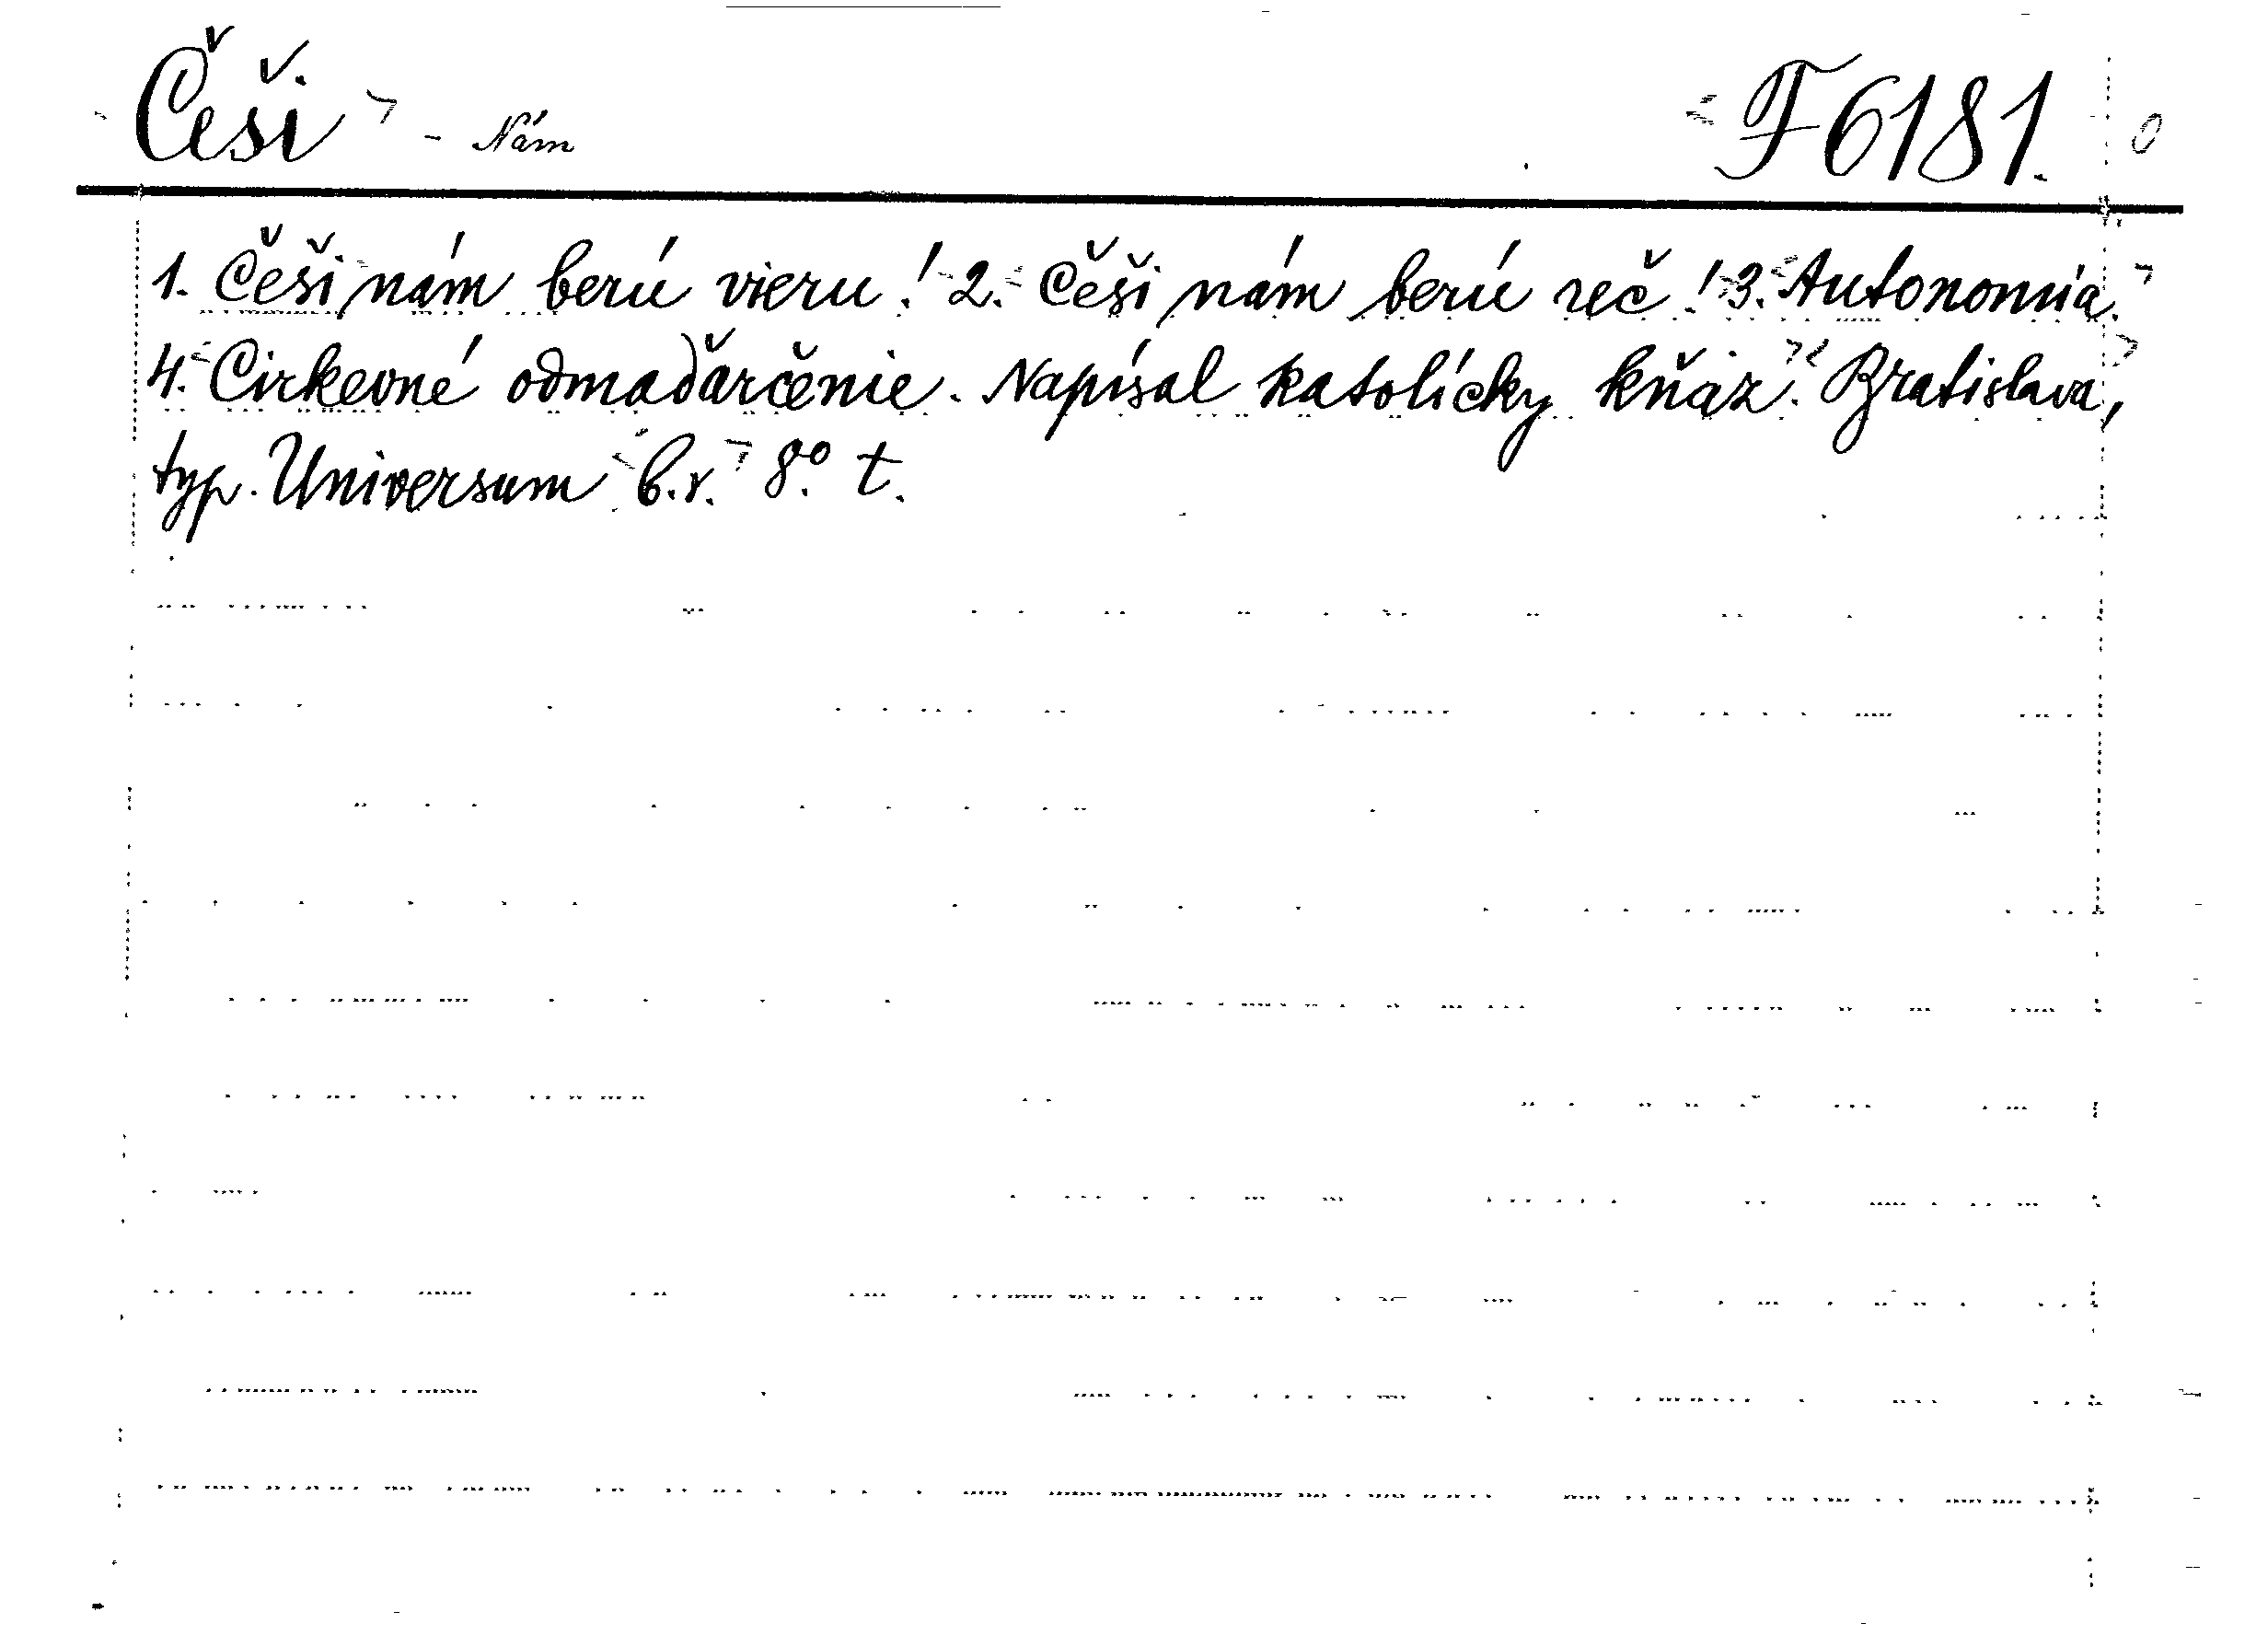 Češi. - Nám F 6181. 0
1. Češi nám berú vieru! 2. Češi nám berú reč! 3. Autonomia.
4. Cirkevné odmaďarčenie. Napísal katolícky kňaz. Bratislava,
typ. Universum b.r. 8.° t.